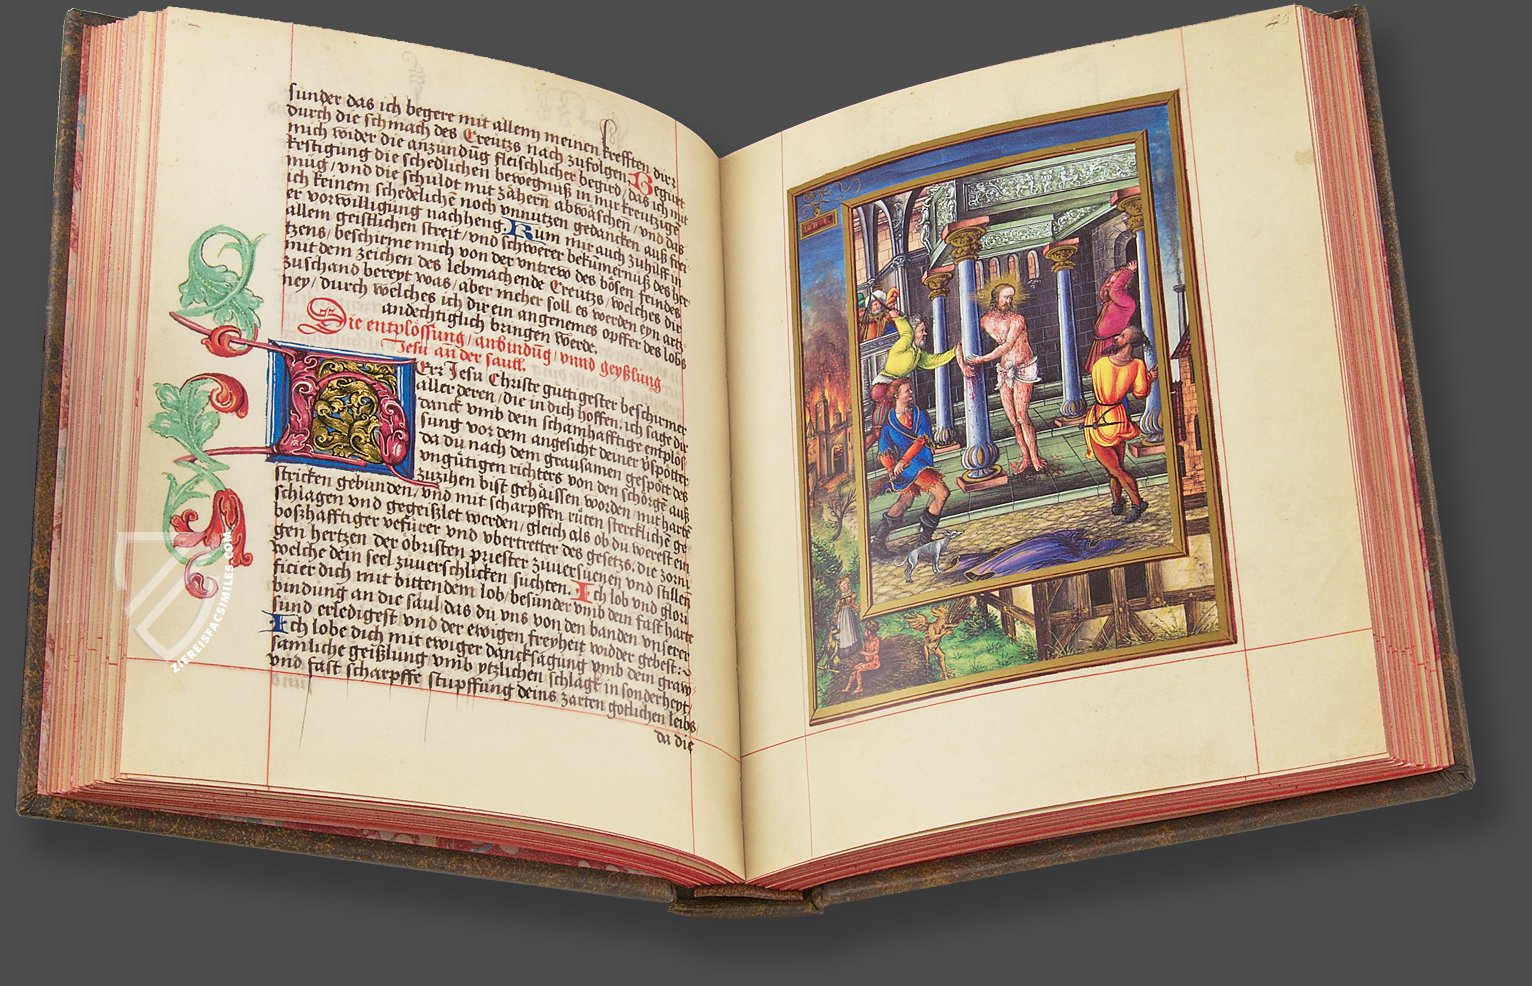 sunder das ich begere mit allem meinen krefften dir
durch die schmach des Creutzs nach zufolgen. Begurt
mich wider die anzündūg fleischlicher begird/das ich mit
kestigung die schedlichen bewegnuß in mir kreutzige
müg/und die schuldt mit zähern abwaschen/vnd das
ich keinem schedelichē noch vnnutzen gedancken auß
er vorwilligung nachheng. Kum mir auch zuhülff in
allem geistlichen streit/vnd schwerer bekümernuß des her
tzens/beschirme mich von der vntrew des bösen feindes
mit dem zeichen des lebmachende Creutzs/welches dir
zuschand bereyt was/aber meher soll es werden eyn artz
ney/durch welches ich dir ein angenemes opffer des lobs
andechtiglich bringen werde.
Die entplössung/anbindūg/vnnd geyßlung
Jesu an der saul.
Herr Jesu Christe gütigester beschirmer
aller deren/die in dich hoffen/ich sage dir
danck vmb dein schamhafftige entplös
sung vor dem angesicht deiner vspötter
da du nach dem grausamen gespött des
vngütigen richters von den schörgē auß
zuzihen bist gehaissen worden/mit hartē
stricken gebunden/vnd mit scharpffen rüten stercklichē ge
schlagen vnd gegeißlet werden/gleich als ob du werest ein
boßhafftiger vefürer vnd vbertretter des gesetzs. die zorni
gen hertzen der obristen priester zuuersuenen vnd stillen
welche dein seel zuuerschlicken suchten. Ich lob vnd glori
ficier dich mit bittendem lob/besunder vmb dein fast harte
bindung an die säul/das du vns von den banden vnserer
sund erledigest/vnd der ewigen freyheit widder gebest.
Ich lobe dich mit ewiger dancksagung vmb dem graw
samliche geißlung/vmb ytzlichen schlagk in sonderheyt/
vnd fast scharpffe stupffung deins zarten gotlichen leibs/
da die
46
ZIEREISFACSIMILES.COM